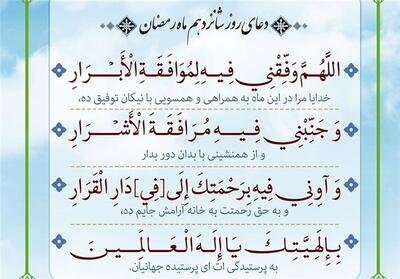 دعای روز شانزدهم ماه رمضان
اللَّهُمَّ وَفِّقْنِي فِيهِ لِمُوَافَقَةِ الْأَبْرَارِ
خدایا مرا در این ماه به همراهی و همسویی با نیکان توفیق ده،
وَ جَنِّبْنِي فِيهِ مُرَافَقَةَ الْأَشْرَارِ
و از همنشینی با بدان دور بدار
وَ آوِنِي فِيهِ بِرَحْمَتِكَ إِلَى [فِي] دَارِ الْقَرَارِ
و به حق رحمتت به خانه آرامش جایم ده،
بِإِلَهِيَّتِكَ يَا إِلَهَ الْعَالَمِينَ
به پرستیدگی ات ای پرستیده جهانیان.